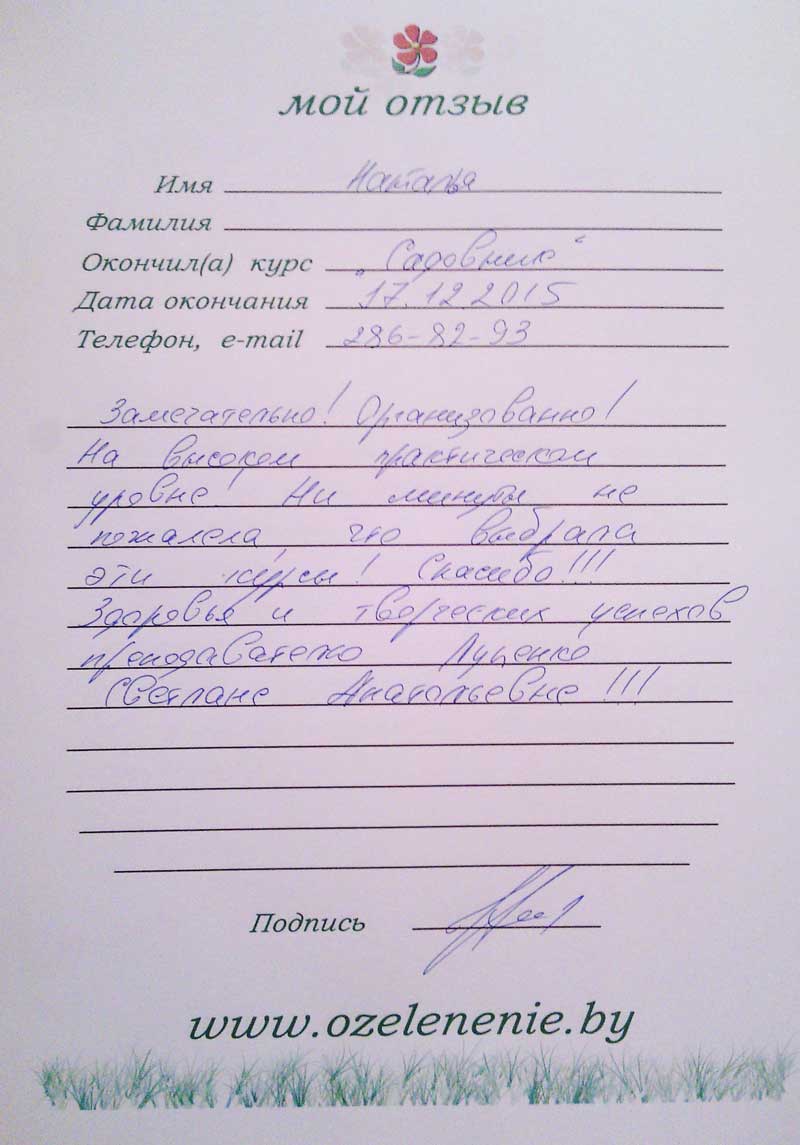 мой отзыв
Имя Наталья
Фамилия
Окончил(а) курс "Садовник"
Дата окончания 17.12.2015
Телефон, e-mail 286-82-93
Замечательно! Организованно!
На высоком практическом
уровне! Ни минуты не
пожалела что выбрала
эти курсы! Спасибо!!!
Здоровья и творческих успехов
преподавателю Луценко
Светлане Анатольевне!!!
Подпись
www.ozelenenie.by